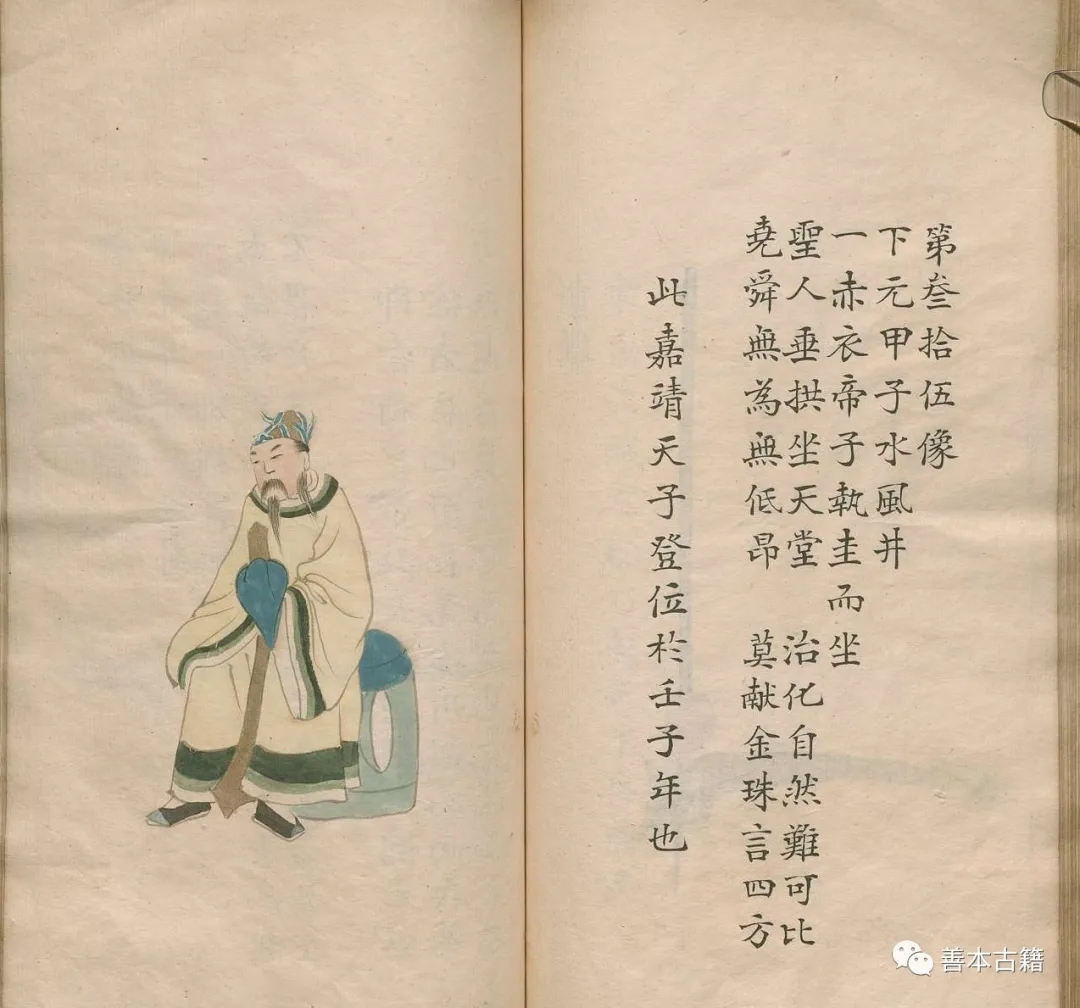 第叄拾伍像
下元甲子水風井
一赤衣帝子執圭而坐
聖人垂拱坐天堂　治化自然難可比
堯舜無為無低昂　莫献金珠言四方
此嘉靖天子登位於壬子年也
善本古籍